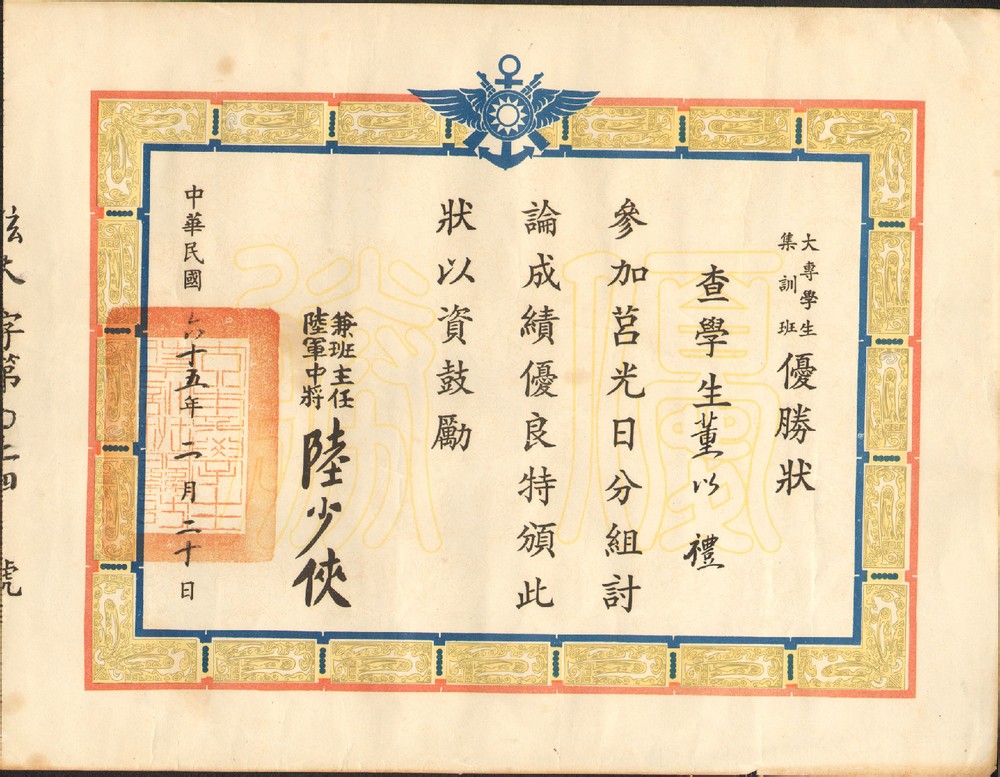 大專學生集訓班優勝狀
查學生董以禮
參加莒光日分組討
論成績優良特頒此
狀以資鼓勵
兼班主任
陸軍中將陸少俠
中華民國六十五年二月二十日
字第
號
優勝